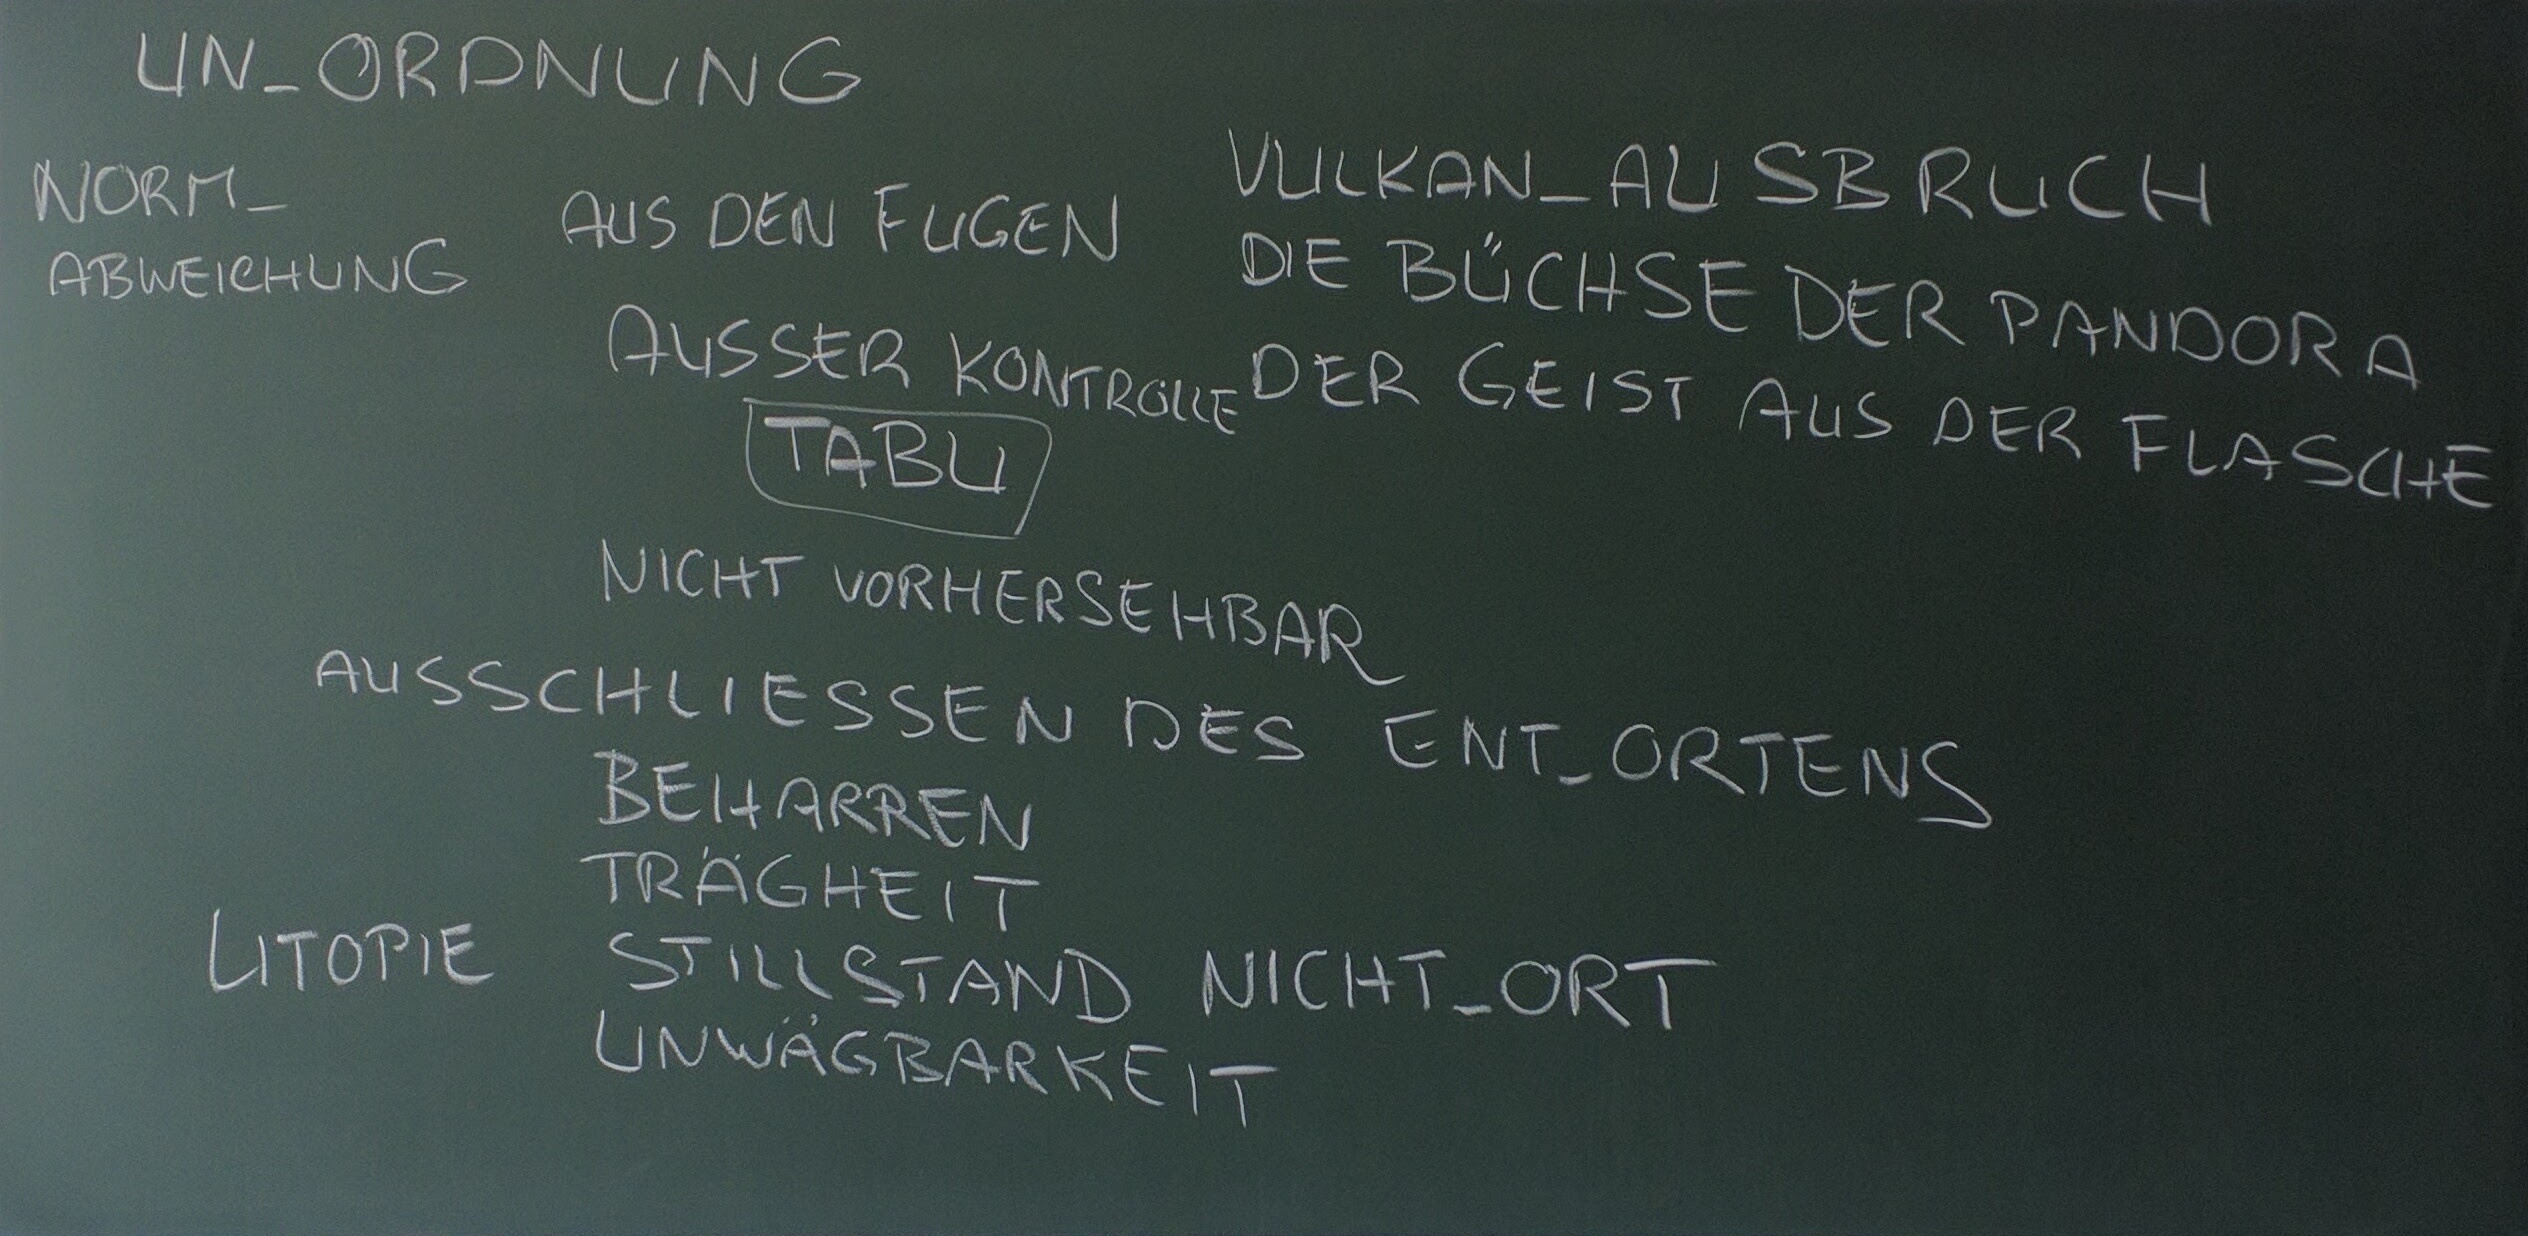 UN_ORDNUNG
NORM_
ABWEICHUNG
AUS DEN FUGEN
AUSSER KONTROLLE
TABU
VULKAN_AUSBRUCH
DIE BÜCHSE DER PANDORA
DER GEIST AUS DER FLASCHE
NICHT VORHERSEHBAR
AUSSCHLIESSEN DES ENT_ORTENS
BEHARREN
TRÄGHEIT
UTOPIE STILLSTAND NICHT_ORT
UNWÄGBARKEIT